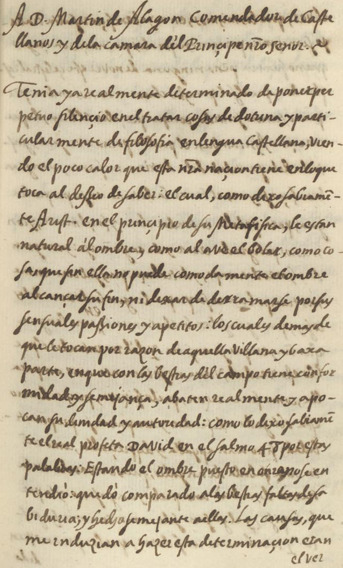 A D. Martin de Alagon Comendador de Caste
llanos y de la camara del Principe nro senor.
Tenia ya realmente determinado da poner per
petuo silençio en el tratar cosas de dotrina y parti
cularmente de filosofia en lengua Castellana, vien
do el poco calor que esta nra nacion tiene en lo que
toca al desseo de saber: el cual, como dexo sabiamē
te Arist. en el principio de su Metafisica, le es tan
natural al ombre, como al ave el bolar, como co
sa, que sin ella no puede comodamente el ombre
alcançar su fin, ni dexar de derramarse por sus
sensuales passiones y apetitos: los cuales demas de
que le tocan por razon de aquella villana y baxa
parte, en que con las bestias del campo tiene confor
midad y semejança, abaten realmente y apo
can su dinidad y autoridad: como lo dexo sabiamē
te el real profeta David en el salmo 48 por estas
palabras: Estando el ombre puesto en onra no se en
tendio: quedo comparado a las bestias faltas de sa
biduria; y hechose mejante a ellas. Las causas, que
me induzian a hazer esta determinacion eran
el ver